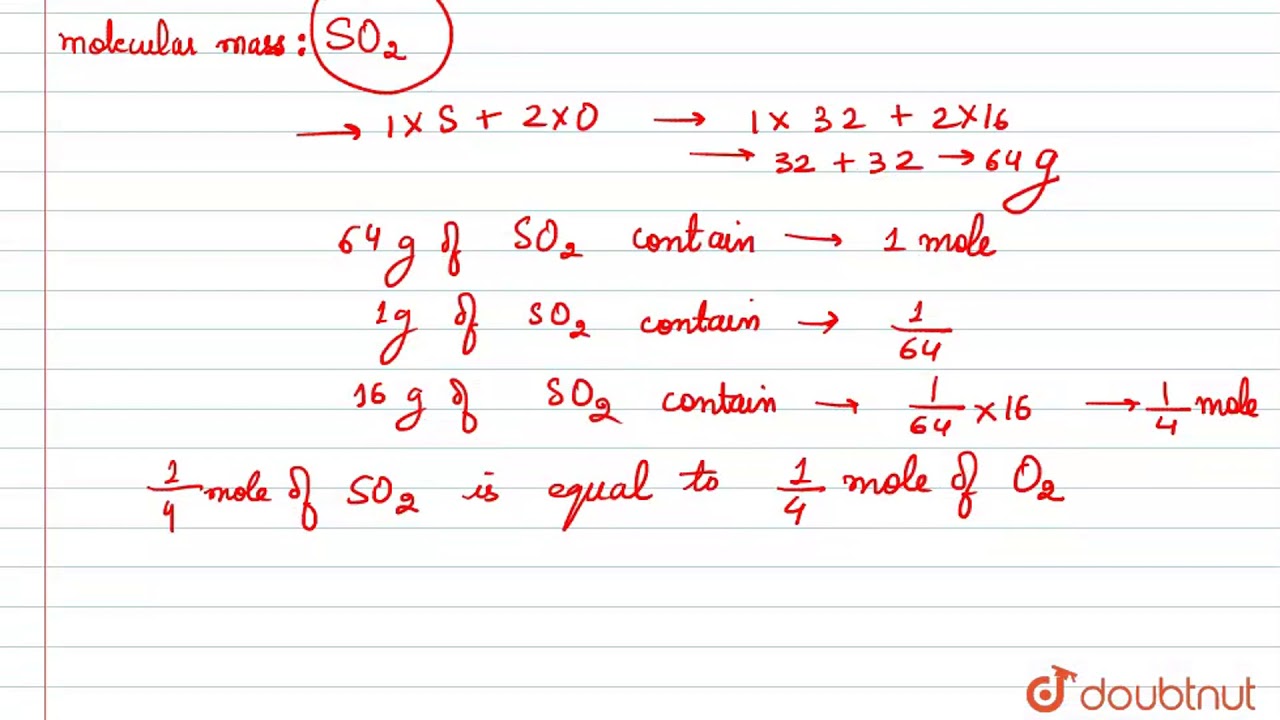 molecular mass: SO₂
→ 1 × S + 2 × O → 1 × 32 + 2 × 16
→ 32 + 32 → 64 g
64 g of SO₂ contain → 1 mole
1 g of SO₂ contain → 1/64
16 g of SO₂ contain → 1/64 × 16 → 1/4 mole
1/4 mole of SO₂ is equal to 1/4 mole of O₂
doubtnut